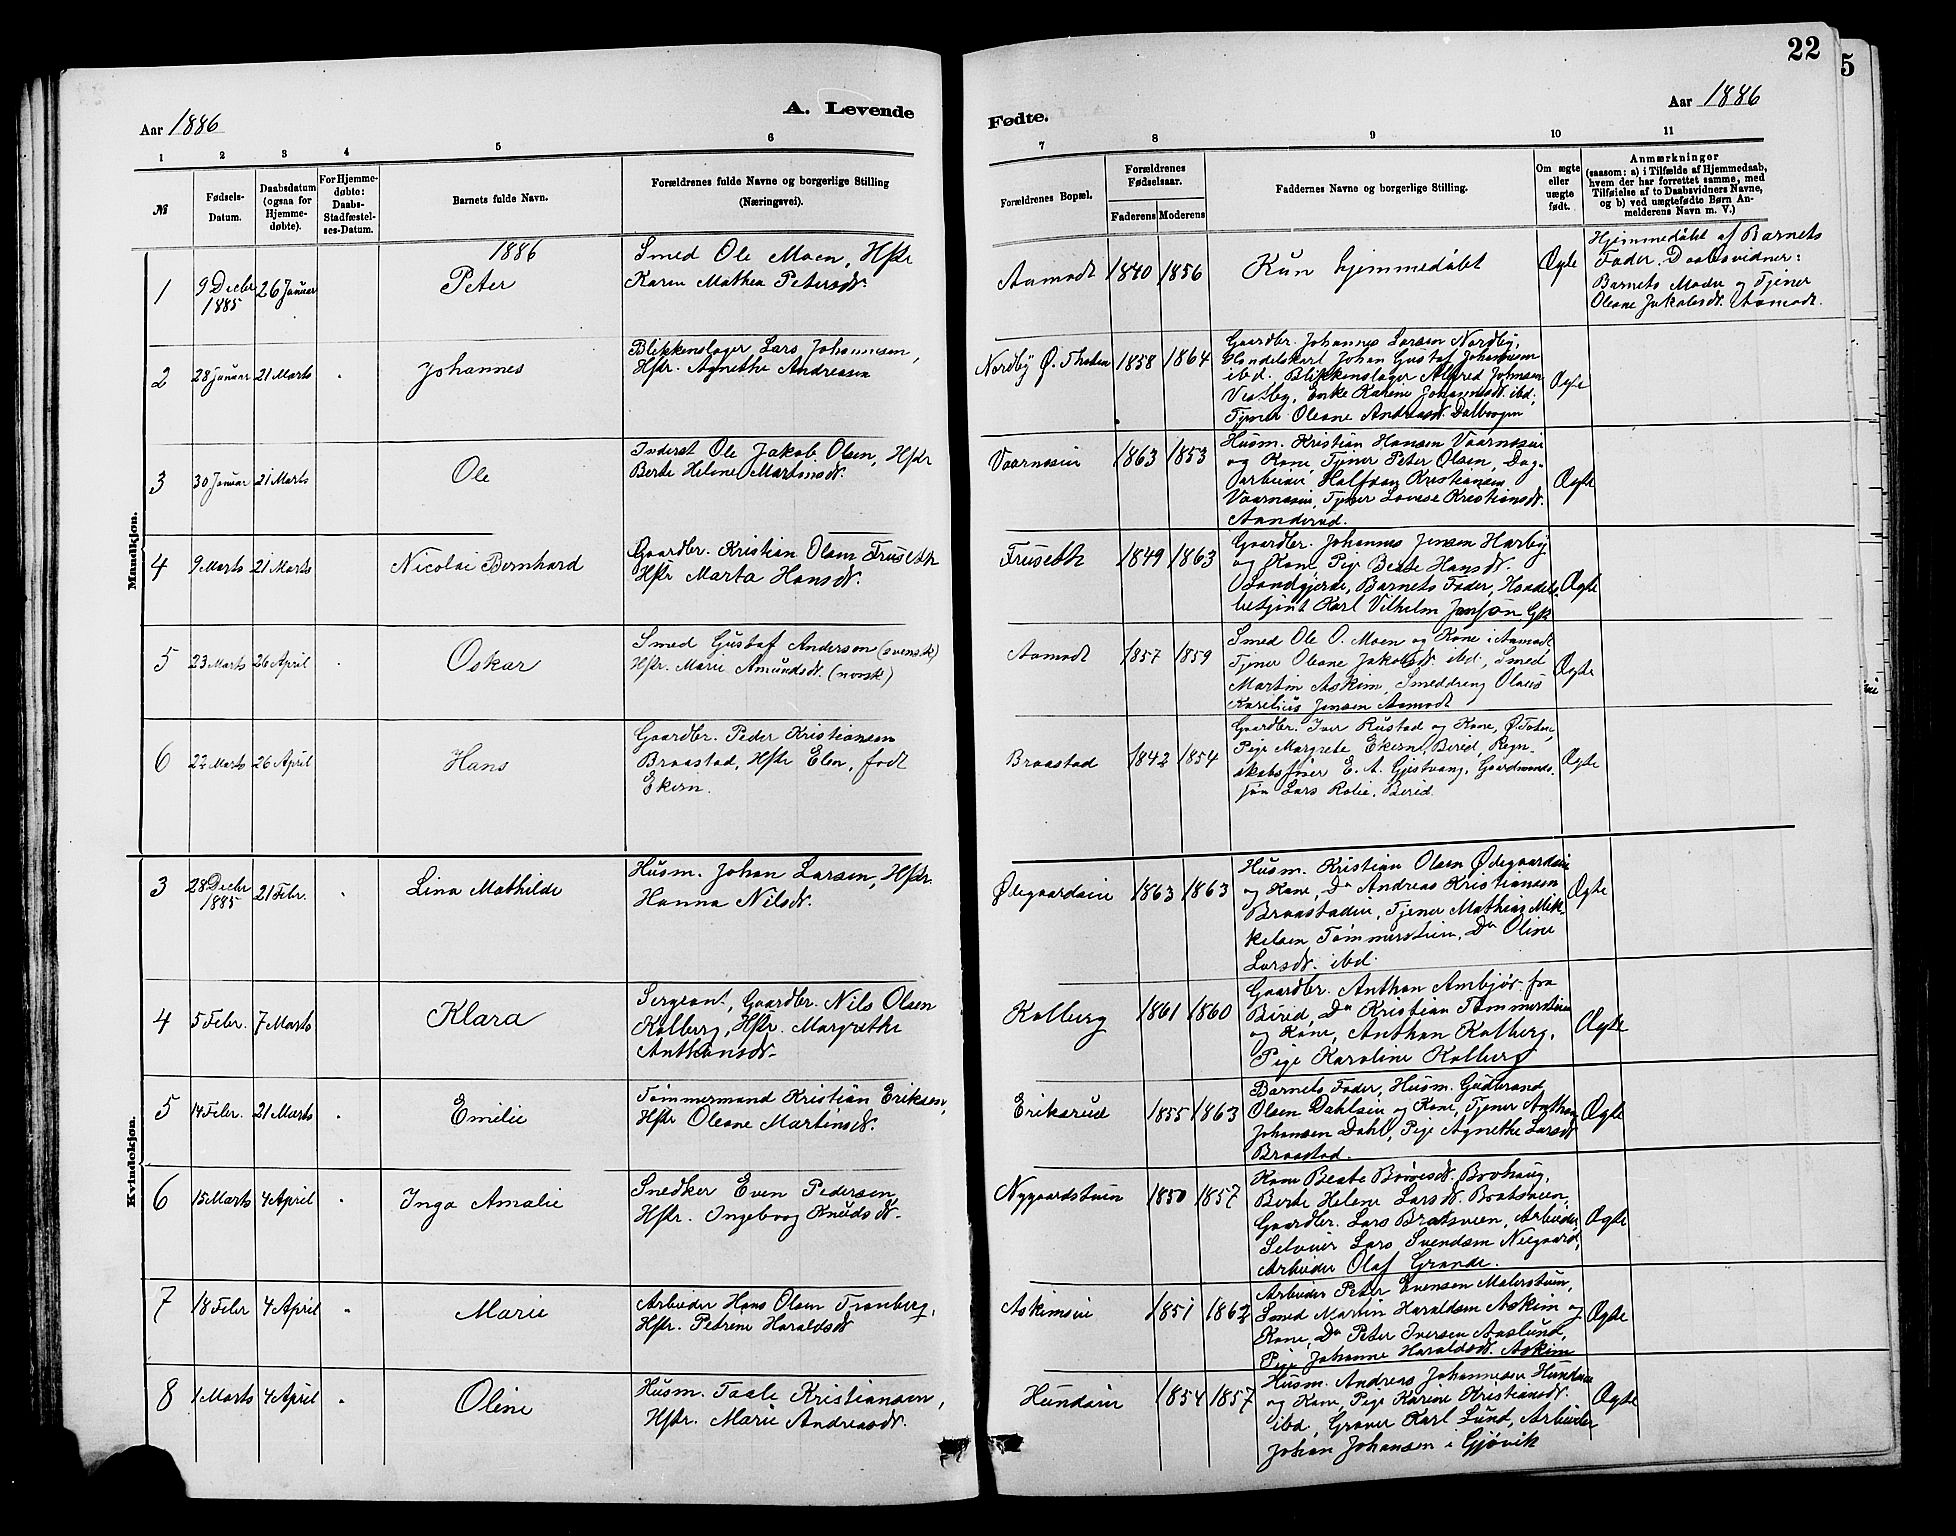 22
5
Aar 1886
A. Levende
Fødte.
Aar 1886
1 2 3 4 5 6
7 8 9 10 11
№
Fødsels-
Datum.
Daabsdatum
(ogsaa for
Hjemme-
døbte).
For Hjemme-
døbte:
Daabs-
Stadfæstel-
ses-Datum.
Barnets fulde Navn.
Forældrenes fulde Navne og borgerlige Stilling
(Næringsvei).
Forældrenes Bopæl.
Forældrenes
Fødselsaar.
Faderens
Moderens
Faddernes Navne og borgerlige Stilling.
Om ægte
eller
uægte
født.
Anmærkninger
(saasom: a) i Tilfælde af Hjemmedaab,
hvem der har forrettet samme, med
Tilføielse af to Daabsvidners Navne,
og b) ved uægtefødte Børn An-
melderens Navn m. V.)
Mandkjøn.
1886
1
9 Decbr
1885
26 Januar
Peter
Smed Ole Moen, Hstr
Karen Mathea Petersdt.
Aamodt
1840
1856
Kun hjemmedøbt
Ægte
Hjemmedøbt af Barnets
Fader. Daabsvidner:
Barnets Moder og Tjener
Oleane Jakobsdt. Aamodt.
2
28 Januar
21 Marts
Johannes
Blikkenslager Lars Johannesen,
Hstr. Agnethe Andreasen
Nordby Ø. Thoten
1858
1864
Gaardbr. Johannes Larsen Nordby,
Handelskarl Johan Gustaf Johannesen
ibd. Blikkenslager Alfred Johnsen
Vestby, Enke Karine Johannesdt. ibd.
Tjener Oleane Andreasdt. Dalborgen
Ægte
3
30 Januar
21 Marts
Ole
Inderst Ole Jakob Olsen, Hstr
Berte Helene Martinsdt.
Vaarnæseie
1863
1853
Husm. Kristian Hansen Vaarnæseie
og Kone, Tjener Peter Olsen, Dag-
arbeider Halfvan Kristiansen
Vaarnæseie, Tjener Lovise Kristiansdt.
Aanderud.
Ægte
4
9 Marts
21 Marts
Nicolai Bernhard
Gaardbr. Kristian Olsen Fruseth
Hstr Marta Hansdt.
Fruseth
1849
1863
Gaardbr. Johannes Jensen Harby
og Kone, Pige Beate Hansdt.
Sandgjerde, Barnets Fader, Handels-
betjent Karl Vilhelm Janson Gjk
Ægte
5
23 Marts
26 April
Oskar
Smed Gustaf Anderson (svensk)
Hstr. Marie Amundsdt. (norsk)
Aamodt
1857
1859
Smed Ole O. Moen og Kone i Aamodt
Tjener Oleane Jakobsdt. ibd., Smed
Martin Askim, Smeddreng Olaus
Karelius Jensen Aamodt
Ægte
6
22 Marts
26 April
Hans
Gaardbr. Peder Kristiansen
Braastad, Hstr Elen, født
Ekern.
Braastad
1842
1854
Gaardbr. Iver Rustad og Kone, Ø. Toten,
Pige Margrete Ekern, Bired, Regn-
skabsfører E. A. Gjestvang, Gaardmands-
søn Lars Rolie, Bired.
Ægte
Kvindekjøn.
3
28 Decbr
1885
21 Febr.
Lina Mathilde
Husm. Johan Larsen, Hstr.
Hanna Nilsdt.
Ødegaardseie
1863
1863
Husm. Kristian Olsen Ødegaardseie
og Kone, Do Andreas Kristiansen
Braastadeie, Tjener Mathias Mik-
kelsen Tømmersteien, Do Oline
Larsdt. ibd.
Ægte
4
5 Febr.
7 Marts
Klara
Sergeant, Gaardbr. Nils Olsen
Kalberg, Hstr. Margrethe
Anthonsdt.
Kalberg
1861
1860
Gaardbr. Anthon Ambjør fra
Bired, Do Kristian Tømmersteien
og Kone, Anthon Kalberg,
Pige Karoline Kalberg
Ægte
5
14 Febr.
21 Marts
Emilie
Tømmermand Kristian Eriksen,
Hstr Oleane Martinsdt.
Eriksrud
1855
1863
Barnets Fader, Husm. Gudbrand
Olsen Dahlseie og Kone, Tjener Anthon
Johansen Dahl, Pige Agnethe Larsdt
Braastad.
Ægte
6
15 Marts
4 April
Inga Amalie
Snedker Even Pedersen,
Hstr. Ingeborg Knudsdt.
Nygaardstuen
1850
1857
Kone Beate Børresdt. Brohaug,
Berte Helene Larsdt. Bratsveen,
Gaardbr. Lars Bratsveen, Arbeider
Selveier Lars Svendsen Neegaard,
Arbeider Olaf Grande.
Ægte
7
18 Febr
4 April
Marie
Arbeider Hans Olsen Tranberg,
Hstr. Petrine Haraldsdt
Askimseie
1851
1862
Arbeider Peter Evensen Malerstuen,
Smed Martin Haraldsen Askim og
Kone, Do Peter Iversen Aaslund,
Pige Johanne Haraldsdt. Askim
Ægte
8
1 Marts
4 April
Oline
Husm. Taale Kristiansen,
Hstr. Marie Andreasdt.
Hundeie
1854
1857
Husm. Andreas Johannesen Hundeie
og Kone, Pige Karine Kristiansdt.
ibd, Graver Karl Lund, Arbeider
Johan Johansen i Gjøvik
Ægte